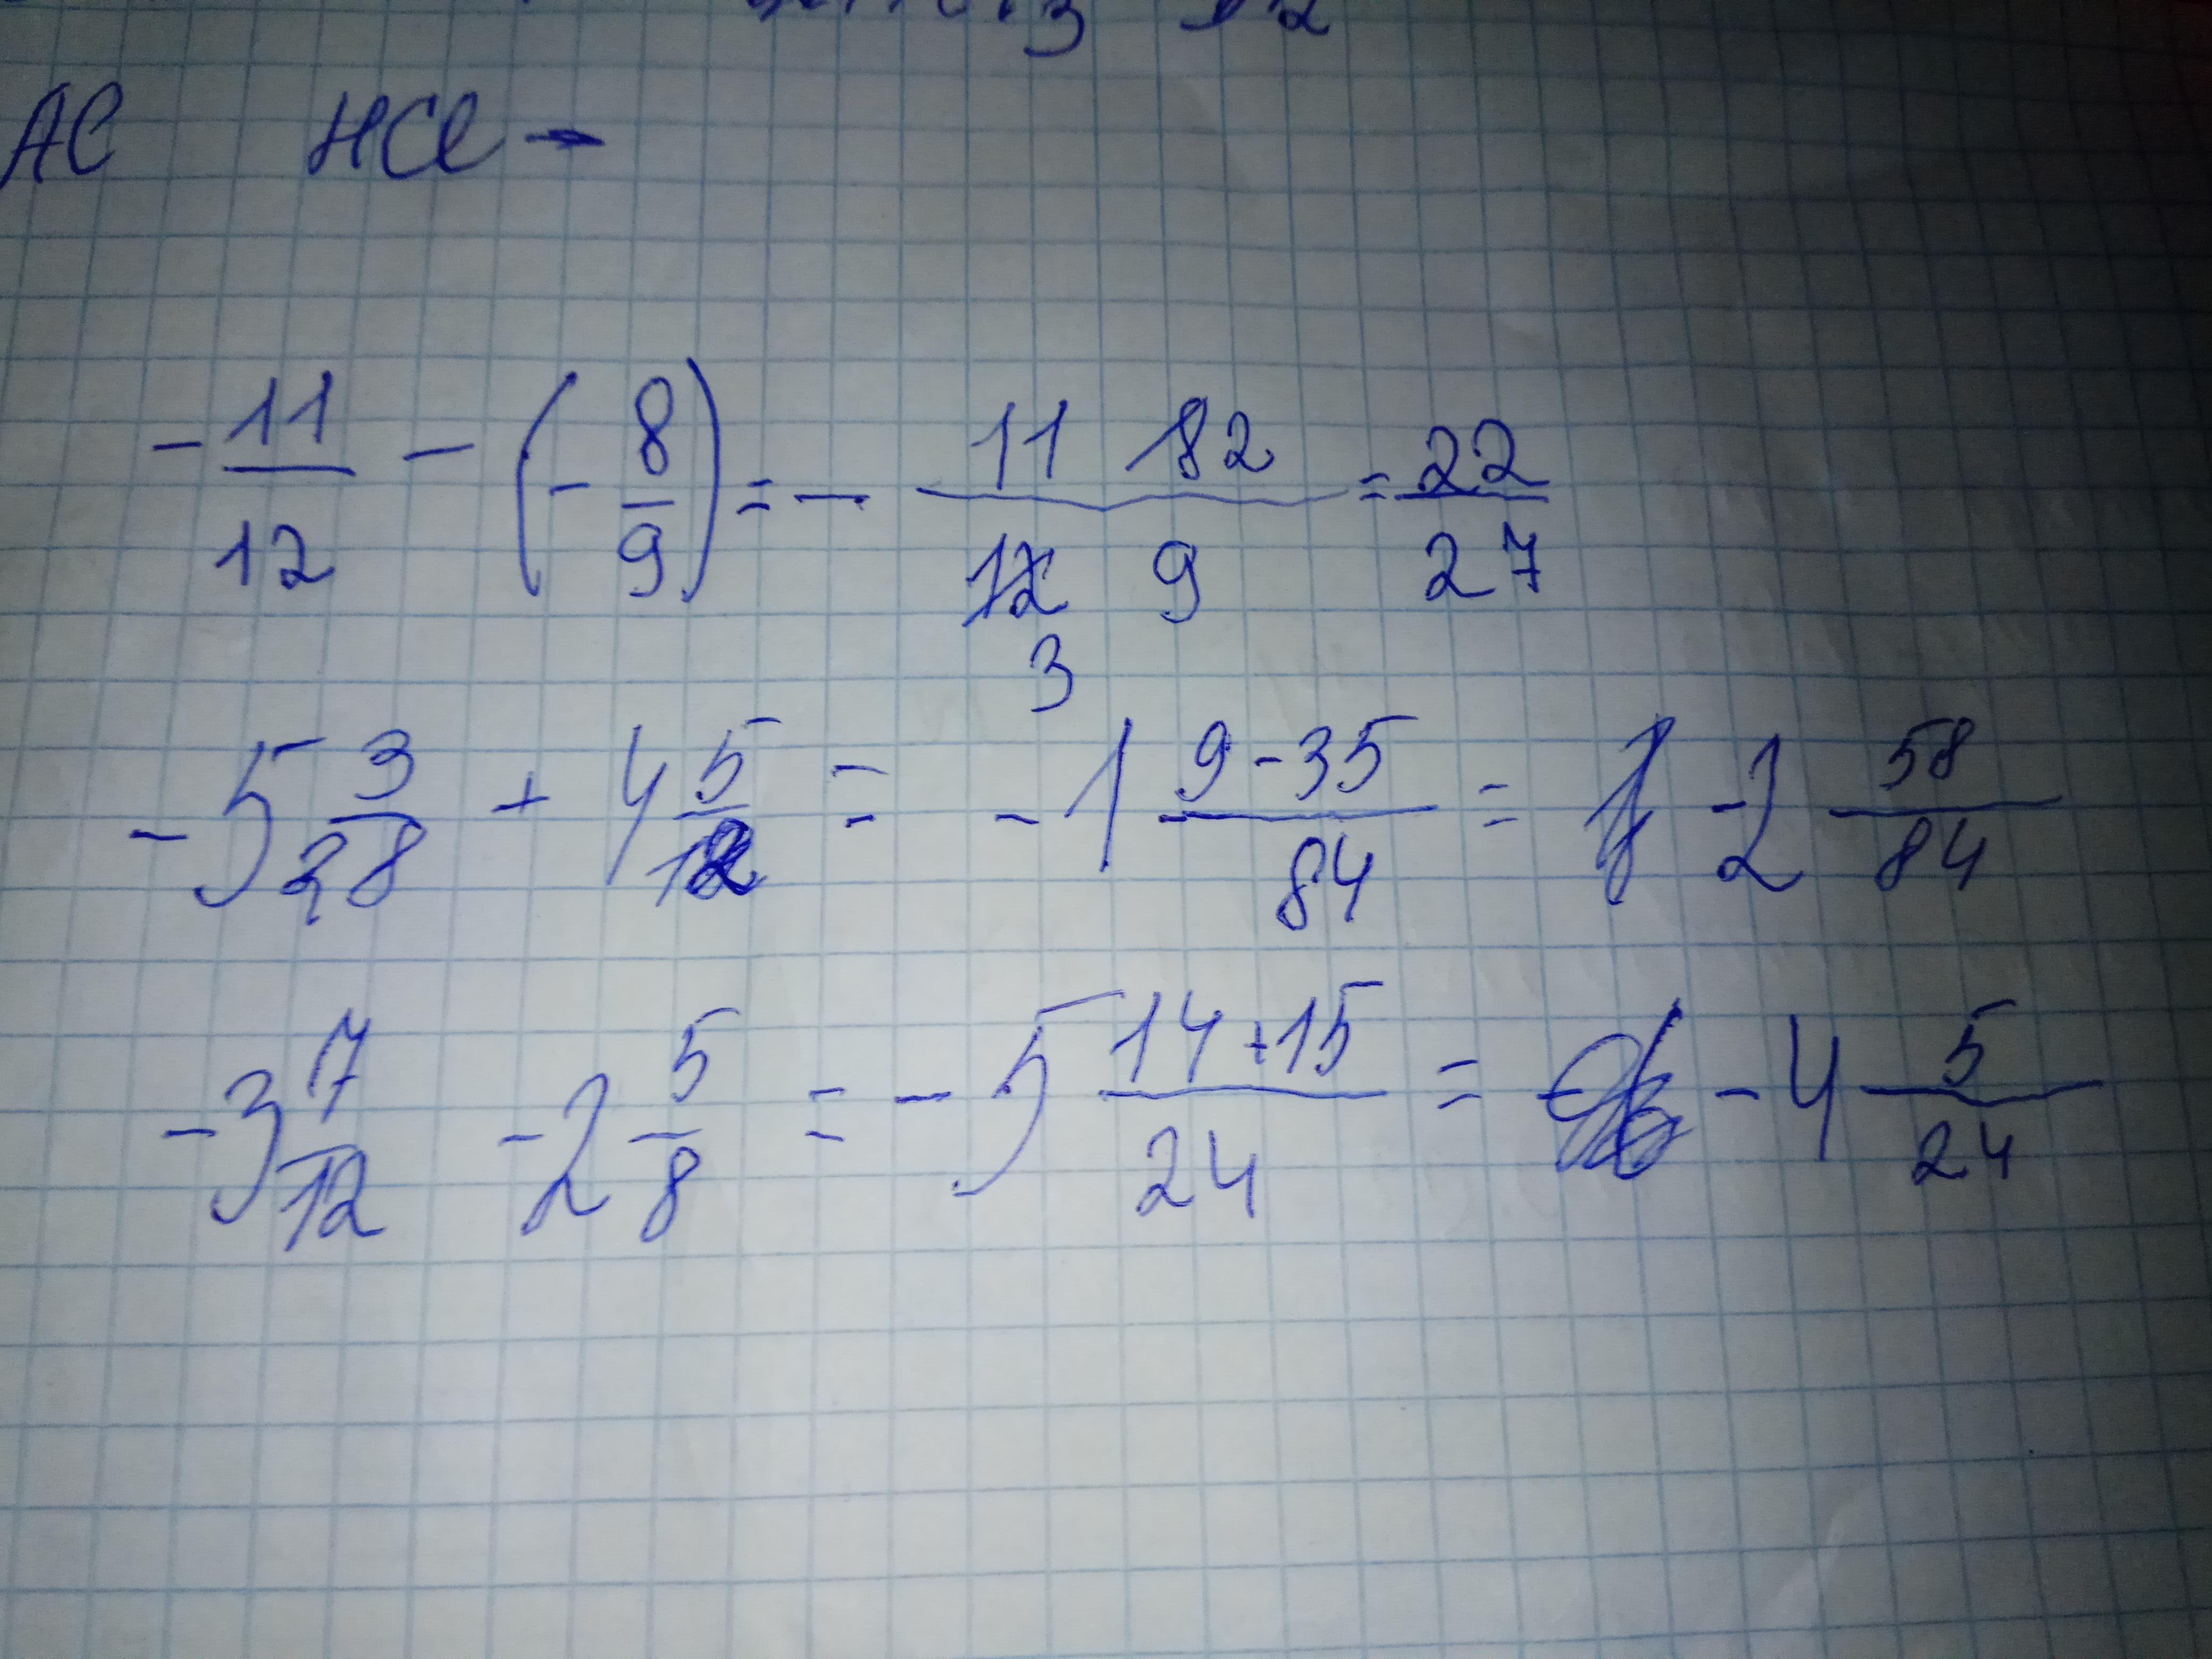 Al HCl →
- 11/12 - (- 8/9) = - 11 8 2 / 12 9 3 = 22/27
- 5 3/28 + 4 5/12 = - 1 9 - 35 / 84 = - 2 58/84
- 3 7/12 - 2 5/8 = - 5 14 + 15 / 24 = - 4 5/24